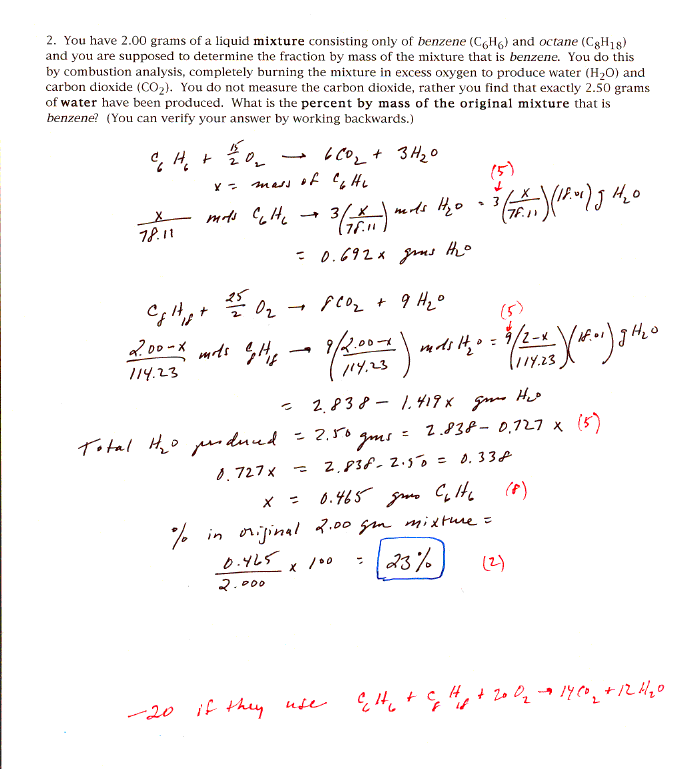 2. You have 2.00 grams of a liquid mixture consisting only of benzene (C₆H₆) and octane (C₈H₁₈)
and you are supposed to determine the fraction by mass of the mixture that is benzene. You do this
by combustion analysis, completely burning the mixture in excess oxygen to produce water (H₂O) and
carbon dioxide (CO₂). You do not measure the carbon dioxide, rather you find that exactly 2.50 grams
of water have been produced. What is the percent by mass of the original mixture that is
benzene? (You can verify your answer by working backwards.)
C₆ H₆ + 15/2 O₂ → 6 CO₂ + 3 H₂O
x = mass of C₆H₆
(5)
x/78.11 mols C₆H₆ → 3(x/78.11) mols H₂O = 3(x/78.11)(18.01) g H₂O
= 0.692x gms H₂O
C₈H₁₈ + 25/2 O₂ → 8 CO₂ + 9 H₂O
(5)
2.00-x/114.23 mols C₈H₁₈ → 9(2.00-x/114.23) mols H₂O = 9(2-x/114.23)(18.01) g H₂O
= 2.838 - 1.419x gms H₂O
Total H₂O produced = 2.50 gms = 2.838 - 0.727 x (5)
0.727x = 2.838 - 2.50 = 0.338
x = 0.465 gms C₆H₆ (8)
% in original 2.00 gm mixture =
0.465/2.000 x 100 = 23% (2)
-20 if they use C₆H₆ + C₈H₁₈ + 20 O₂ → 14 CO₂ + 12 H₂O